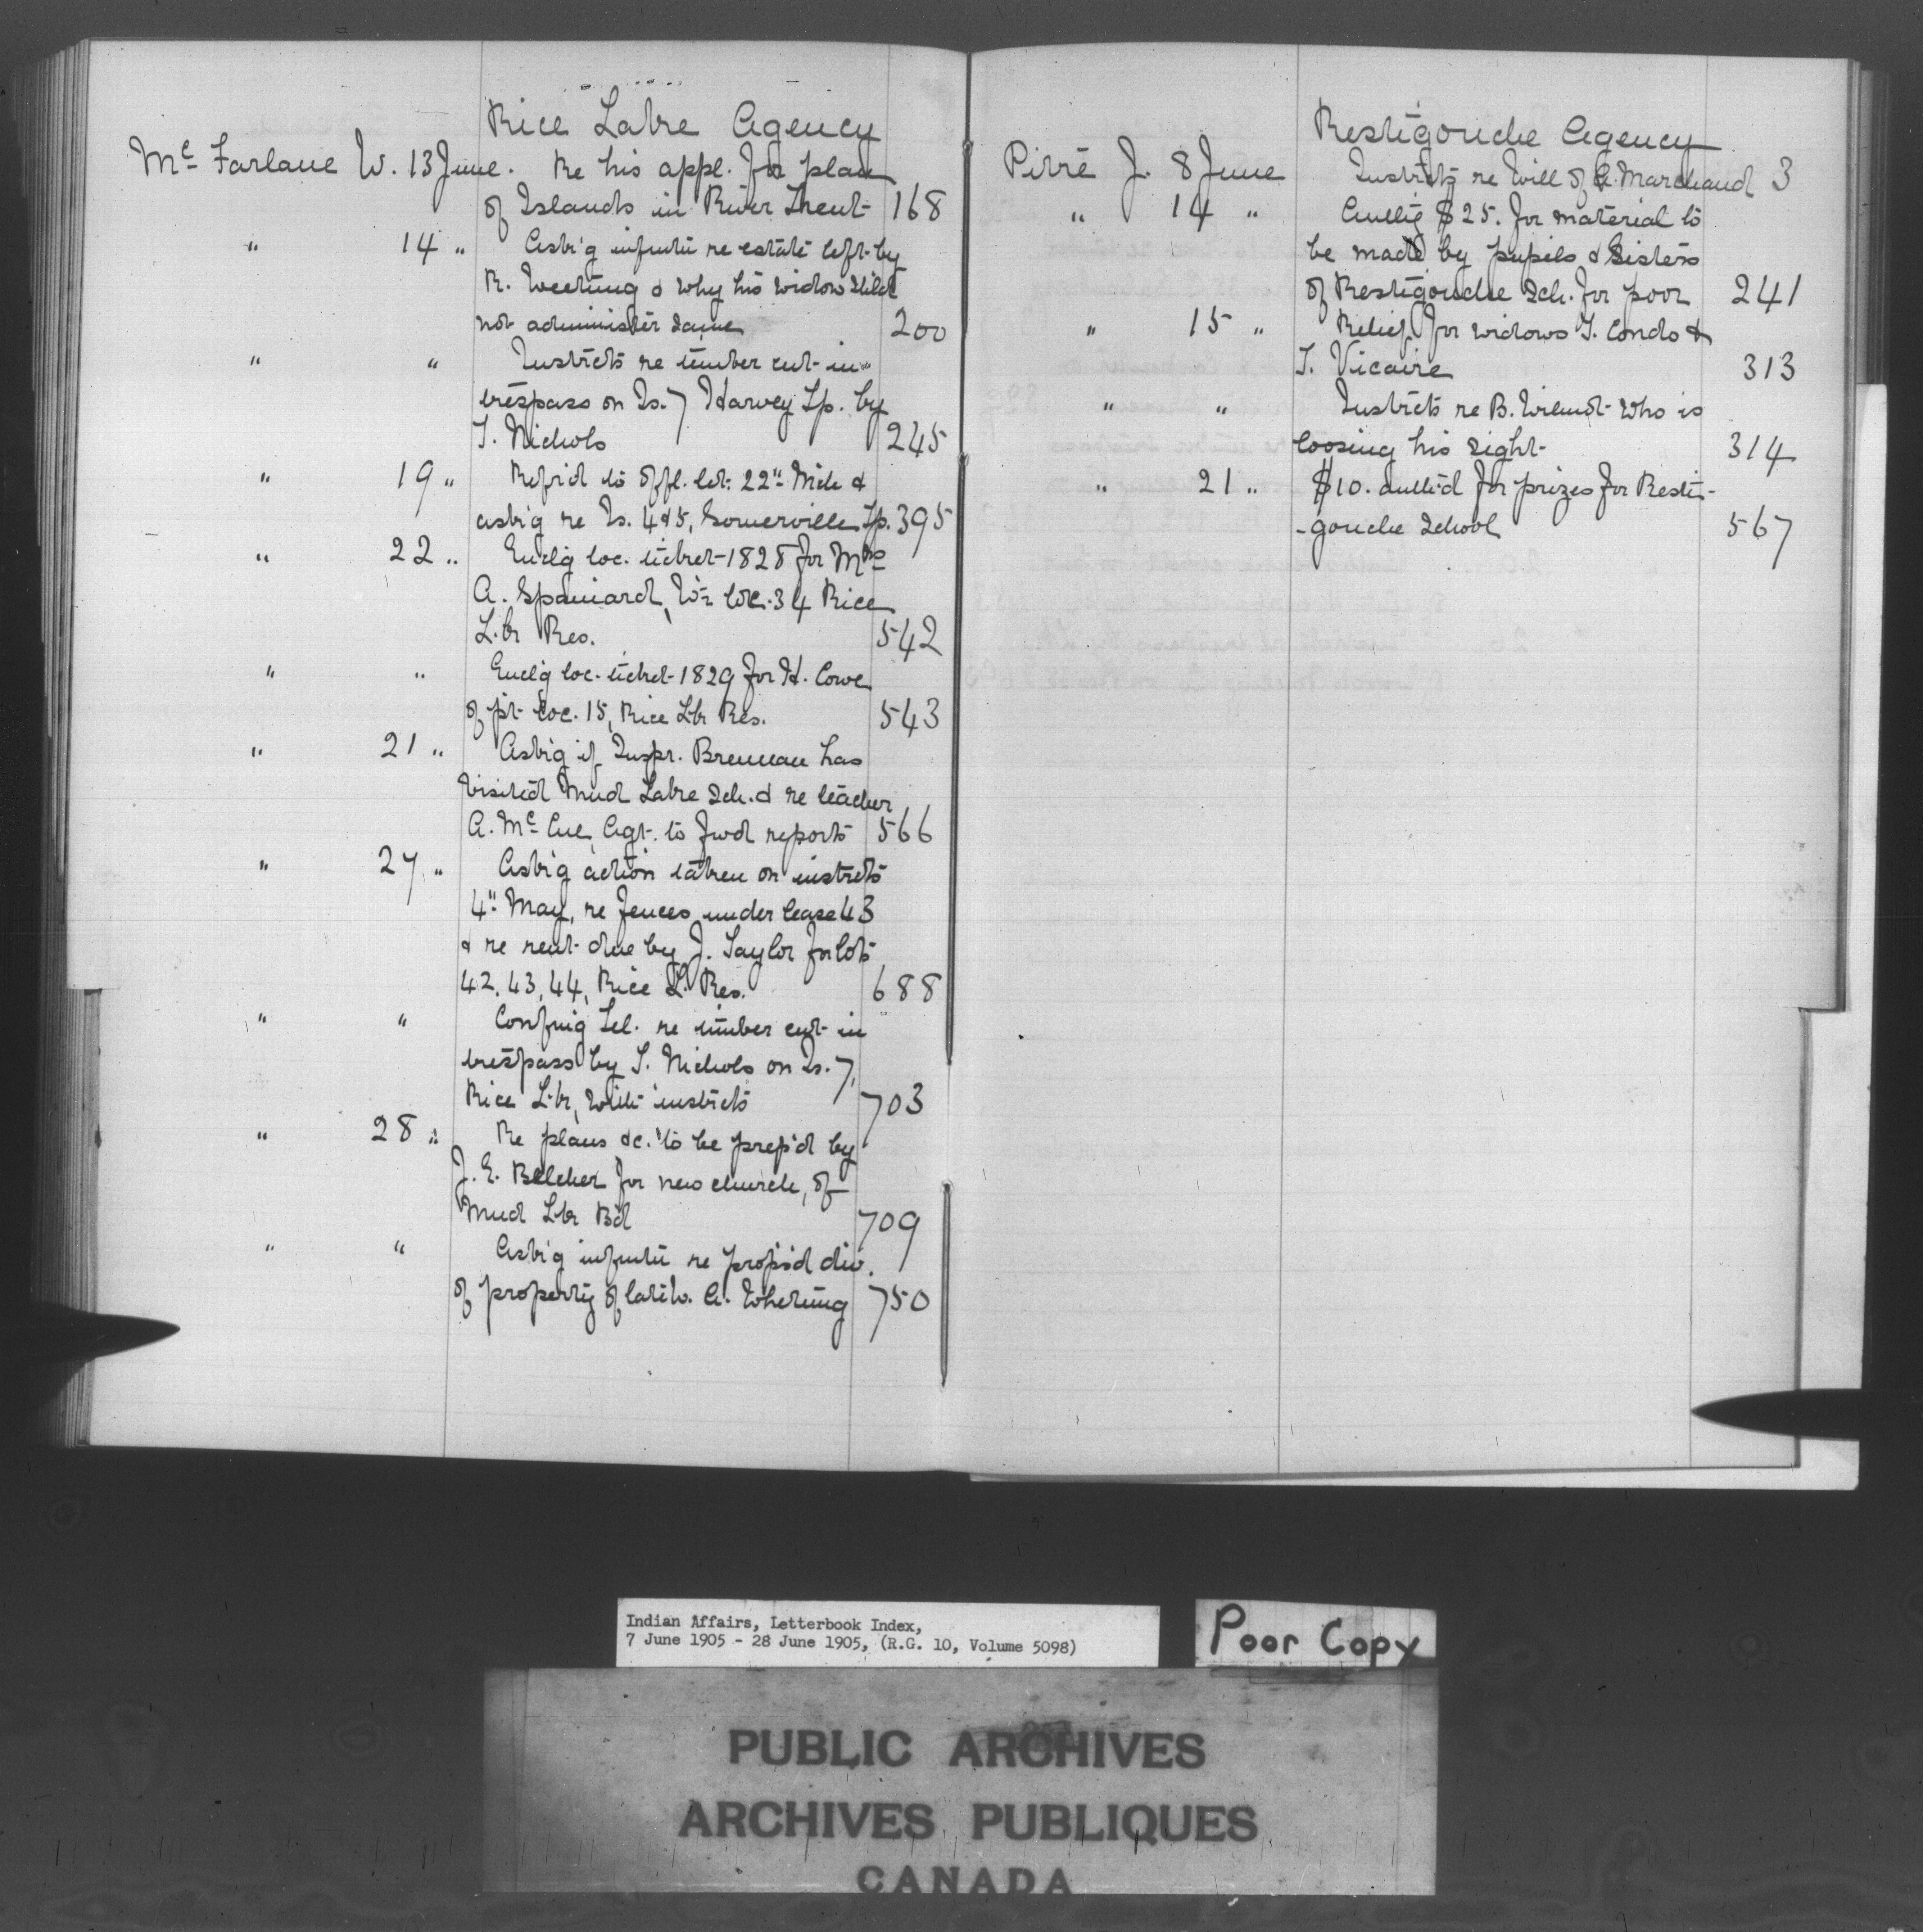 Rice Lake Agency
McFarlane W. 13 June. Re his appl. for plan
of Islands in River Trent 168
" 14 " Ask'g infmtn re estate left by
R. Weeting & why his widow shld
not administer same 200
" " Instrcts re timber cut in
trespass on Is. 7 Harvey Tp. by
T. Nichols 245
" 19 " Refrd to offl. let. 22" Mch &
ask'g re Is. 4&5, Somerville Tp. 395
" 22 " Encl'g loc. ticket 1828 for Mrs
A. Spaniard, loc. 34 Rice
L.k Res. 542
" " Encl'g loc. ticket 1829 for H. Cowe
of pt loc. 15, Rice Lk Res. 543
" 21 " Ask'g if Inspr. Brennan has
visited Mud Lake Sch. & re teacher
A. McCue, Agt. to fwd reports 566
" 27 " Ask'g action taken on instrcts
4" May, re fences under lease 43
& re rent due by J. Taylor for lots
42, 43, 44, Rice L. Res. 688
" " Confm'g Tel. re timber cut in
trespass by T. Nichols on Is. 7,
Rice Lk, with instrcts 703
" 28 " Re plans &c. to be prep'd by
J. E. Belcher for new church, of
Mud Lk Bd 709
" " Ask'g infmtn re prop's'd div.
of property of late A. Whetung 750
Restigouche Agency
Pirré J. 8 June Instrcts re Will of A. Marchand 3
" 14 " Authg $25. for material to
be made by pupils & Sisters
of Restigouche Sch. for poor 241
" 15 " Relief for widows T. Condo &
T. Vicaire 313
" " Instrcts re B. Wilmot who is
loosing his sight 314
" 21 " $10. auth'd for prizes for Resti-
-gouche School 567
Indian Affairs, Letterbook Index,
7 June 1905 - 28 June 1905, (R.G. 10, Volume 5098)
Poor Copy
PUBLIC ARCHIVES
ARCHIVES PUBLIQUES
CANADA